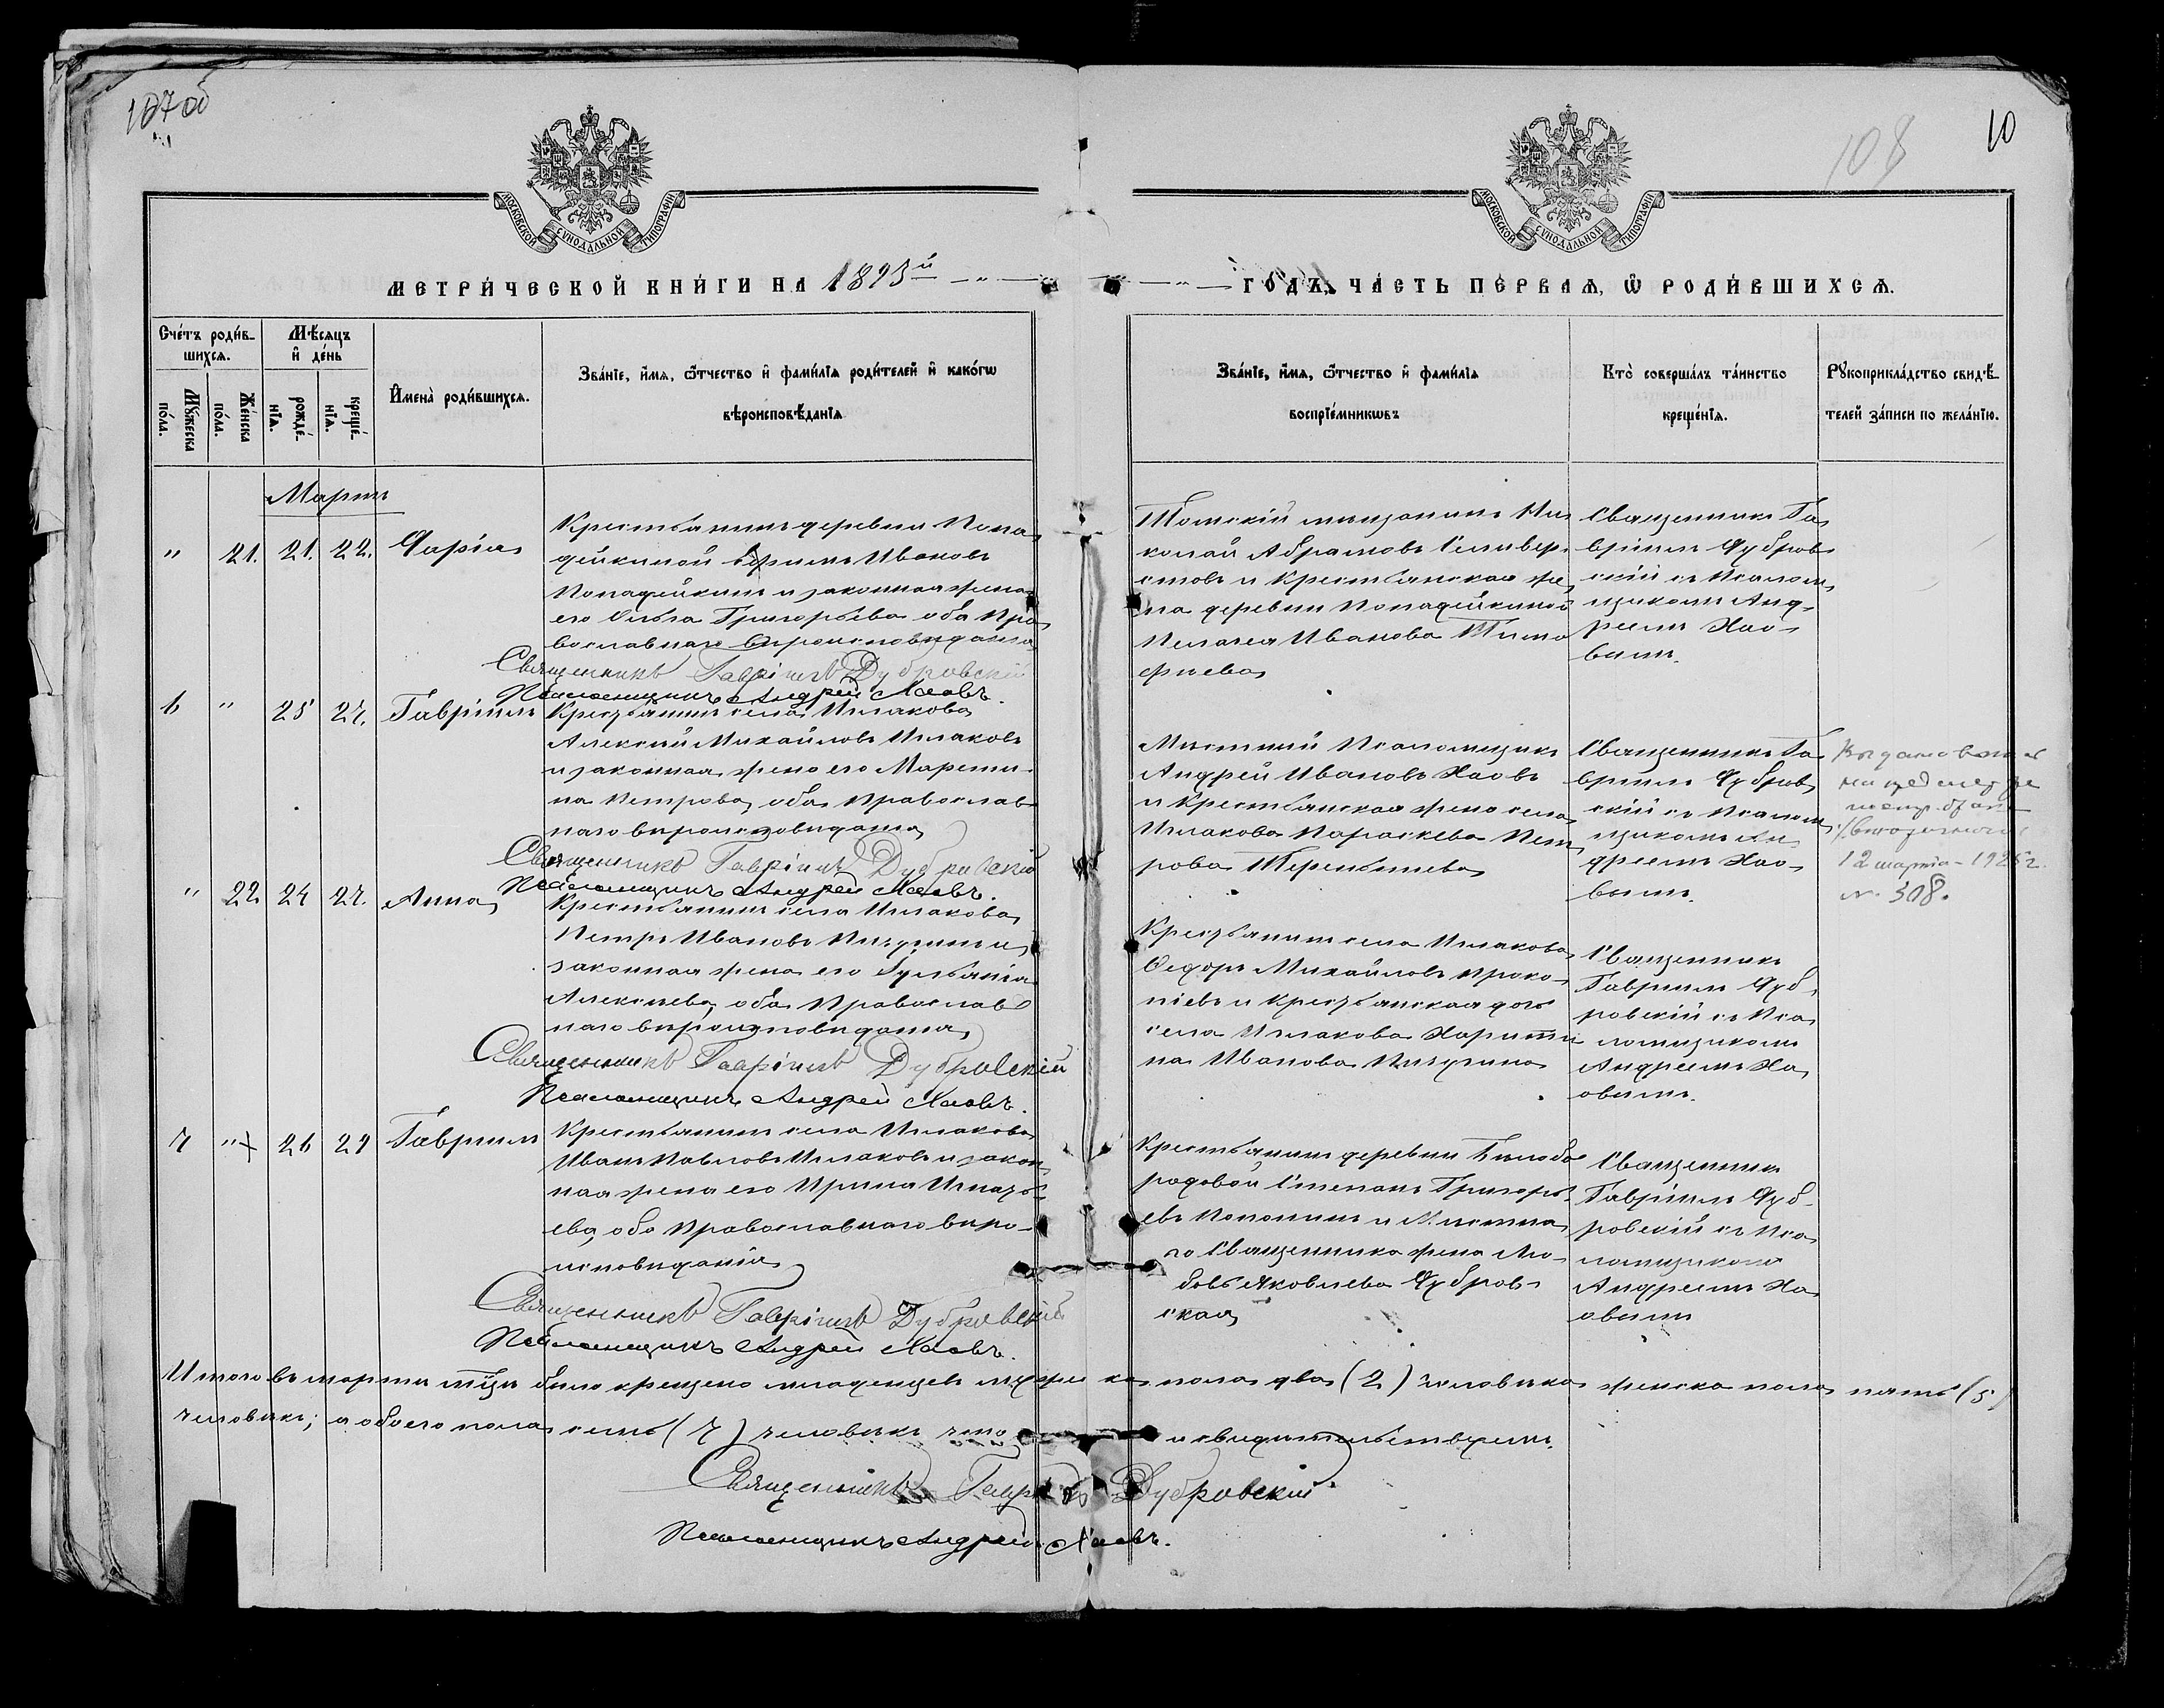 107 об
108
10
МОСКОВСКОЙ СѴНОДАЛЬНОЙ ТИПОГРАФІИ
МОСКОВСКОЙ СѴНОДАЛЬНОЙ ТИПОГРАФІИ
МЕТРИ́ЧЕСКОЙ КНИ́ГИ НА 1893й
ГО́ДЪ, ЧА́СТЬ ПЕ́РВАѦ, Ѡ РОДИ́ВШИХСѦ.
Сче́тъ роди́в-
шихсѧ.
Мꙋ́жеска по́ла.
Же́нска по́ла.
Мѣ́сѧцъ
и҆ де́нь
рожде́-нїѧ.
креще́-нїѧ.
И҆мена̀ роди́вшихсѧ.
Зва́нїе, и҆́мѧ, ѻ҆́тчество и҆ фами́лїѧ роди́телей и҆ како́гѡ
вѣроисповѣ́данїѧ
Зва́нїе, и҆́мѧ, ѻ҆́тчество и҆ фами́лїѧ
воспрїе́мникѡвъ
Кто̀ соверша́лъ та́инство
креще́нїѧ.
Рꙋкоприкла́дство свидѣ́-
телей за́писи по жела́нїю.
Мартъ
" 21. 21. 22. Дарія
Крестьянинъ деревни Попа
дейкиной Ефимъ Ивановъ
Попадейкинъ и законная жена
его Ольга Григорьева оба пра
вославнаго вѣроисповѣданія
Священникъ Гавріилъ Дубровскій
Псаломщикъ Андрей Хаовъ.
Томскій мѣщанинъ Ни
колай Абрамовъ Селивер
стовъ и крестьянская же
на деревни Попадейкиной
Пелагея Иванова Тимо
фиева
Священникъ Га
вріилъ Дубров
скій съ псалом
щикомъ Анд
реемъ Хао
вымъ.
6 " 25 27. Гавріилъ
Крестьянинъ села Ишакова
Алексѣй Михайловъ Ишаковъ
и законная жена его Марти
на Петрова, оба православ
наго вѣроисповѣданія
Священникъ Гавріилъ Дубровскій
Псаломщикъ Андрей Хаовъ.
Мѣстный псаломщикъ
Андрей Ивановъ Хаовъ
и крестьянская жена села
Ишакова Параскева Пет
рова Терентьева
Священникъ Га
вріилъ Дубров
скій съ псалом
щикомъ Ан
дреемъ Хао
вымъ.
12 марта
№ 308.
" 22 24 27. Анна
Крестьянинъ села Ишакова
Петръ Ивановъ Пичугинъ и
законная жена его Ульянія
Алексѣева, оба православ
наго вѣроисповѣданія
Священникъ Гавріилъ Дубровскій
Псаломщикъ Андрей Хаовъ.
Крестьянинъ села Ишакова
Ѳедоръ Михайловъ Проко
піевъ и крестьянская дочь
села Ишакова Харити
на Иванова Пичугина
Священникъ
Гавріилъ Дуб
ровскій съ пса
ломщикомъ
Андреемъ Ха
овымъ.
7 " 26 29 Гавріилъ
Крестьянинъ села Ишакова
Иванъ Павловъ Ишаковъ и закон
ная жена его Ирина Игнать
ева, оба православнаго вѣро
исповѣданія
Священникъ Гавріилъ Дубровскій
Псаломщикъ Андрей Хаовъ.
Крестьянинъ деревни Бѣлобо
родовой Степанъ Григорь
евъ Пономинъ и Мѣстна
го Священника жена Лю
бовь Яковлева Дубров
ская
Священникъ
Гавріилъ Дуб
ровскій съ пса
ломщикомъ
Андреемъ Ха
овымъ
Итого въ мартѣ м-цѣ было крещено младенцевъ мужеска пола два (2) человѣка женска пола пять (5)
человѣкъ; а обоего пола семь (7) человѣкъ что и свидѣтельствуемъ.
Священникъ Гавріилъ Дубровскій
Псаломщикъ Андрей Хаовъ.